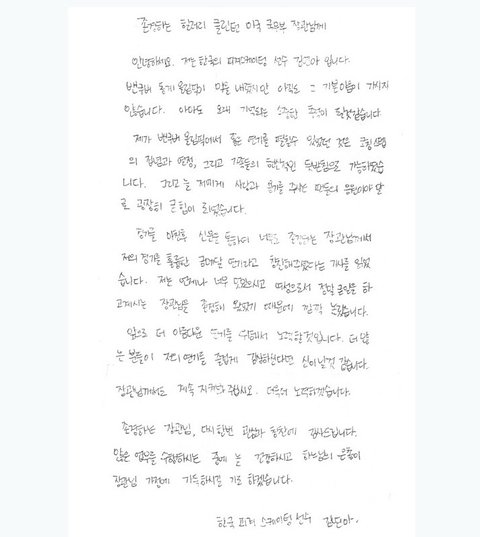 존경하는 힐러리 클린턴 미국 국무부 장관님께
안녕하세요. 저는 한국의 피겨스케이팅 선수 김연아 입니다.
밴쿠버 동계 올림픽이 막을 내렸지만 아직도 그 기쁨이 가시지
않습니다. 아마도 오래 기억되는 소중한 추억이 될것 같습니다
제가 밴쿠버 올림픽에서 좋은 연기를 펼칠수 있었던 것은 코칭스탭
의 집념과 열정, 그리고 가족들의 헌신적인 뒷받침으로 가능하였습
니다. 그리고 늘 저에게 사랑과 용기를 주시는 팬들의 응원이야 말
로 굉장히 큰 힘이 되었습니다.
경기를 마친후 신문을 통하여 너무도 존경하는 장관님께서
저의 경기를 훌륭한 금메달 연기라고 칭찬해주셨다는 기사를 읽었
습니다. 저는 언제나 너무 멋있으시고 여성으로서 정말 큰일을 하
고계시는 장관님을 존경해 왔었기 때문에 깜짝 놀랐습니다.
앞으로 더 아름다운 연기를 위해서 노력할것입니다. 더 많
은 분들이 저의 연기를 즐겁게 감상하신다면 신이날것 같습니다.
장관님께서도 계속 지켜봐 주십시오. 더욱더 노력하겠습니다.
존경하는 장관님, 다시한번 관심과 칭찬에 감사드립니다.
많은 업무를 수행하시는 중에 늘 건강하시고 하느님의 은총이
장관님 가정에 가득하시길 기도 하겠습니다.
한국 피겨 스케이팅 선수 김연아.